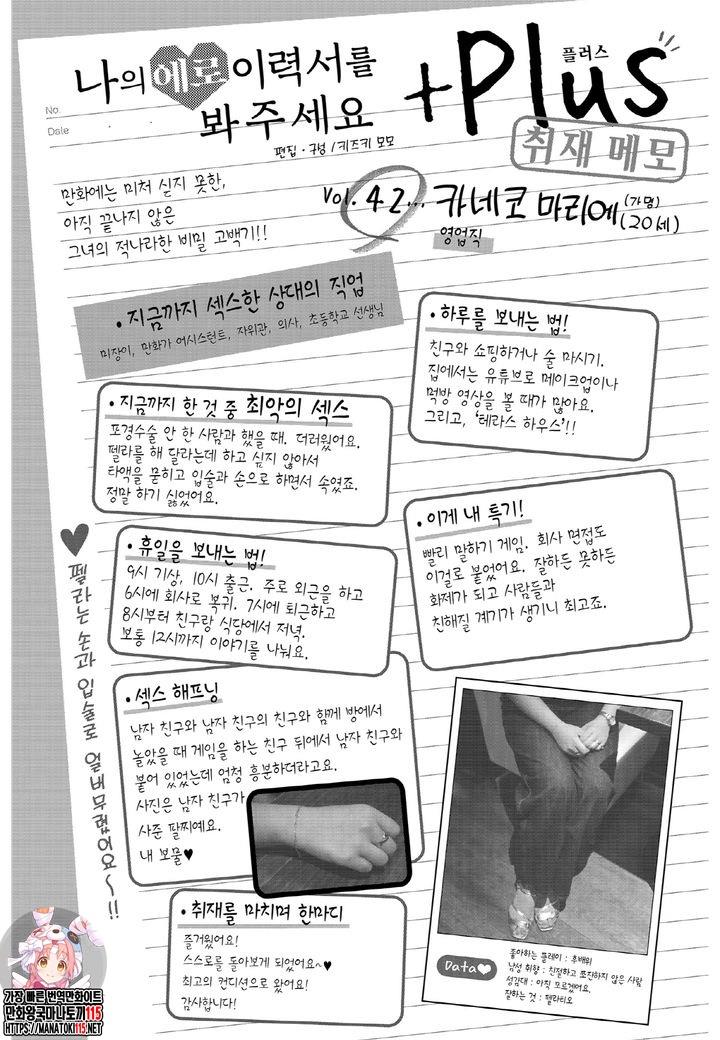 No.
Date
나의 에로 이력서를
봐주세요
+Plus
플러스
편집·구성/키즈키 모모
취재 메모
만화에는 미처 싣지 못한,
아직 끝나지 않은
그녀의 적나라한 비밀 고백기!!
Vol.42... 카네코 마리에 (가명)
(20세)
영업직
·지금까지 섹스한 상대의 직업
미장이, 만화가 어시스턴트, 자위관, 의사, 초등학교 선생님
·하루를 보내는 법!
친구와 쇼핑하거나 술 마시기.
집에서는 유튜브로 메이크업이나
먹방 영상을 볼 때가 많아요.
그리고, '테라스 하우스'!!
·지금까지 한 것 중 최악의 섹스
포경수술 안 한 사람과 했을 때. 더러웠어요.
펠라를 해 달라는데 하고 싶지 않아서
타액을 묻히고 입술과 손으로 하면서 속였죠.
정말 하기 싫었어요.
♥펠라는 손과 입술로 얼버무렸어요~!!
·이게 내 특기!
빨리 말하기 게임. 회사 면접도
이걸로 붙었어요. 잘하든 못하든
화제가 되고 사람들과
친해질 계기가 생기니 최고죠.
·휴일을 보내는 법!
9시 기상, 10시 출근. 주로 외근을 하고
6시에 회사로 복귀. 7시에 퇴근하고
8시부터 친구랑 식당에서 저녁.
보통 12시까지 이야기를 나눠요.
·섹스 해프닝
남자 친구와 남자 친구의 친구와 함께 방에서
놀았을 때 게임을 하는 친구 뒤에서 남자 친구와
붙어 있었는데 엄청 흥분하더라고요.
사진은 남자 친구가
사준 팔찌예요.
내 보물♥
·취재를 마치며 한마디
즐거웠어요!
스스로를 돌아보게 되었어요~♥
최고의 컨디션으로 왔어요!
감사합니다!
Data♥
좋아하는 플레이 : 후배위
남성 취향 : 친절하고 쪼잔하지 않은 사람
성감대 : 아직 모르겠어요.
잘하는 것 : 펠라티오
가장 빠른 번역만화이트
만화왕국마나토끼115
HTTPS://MANATOKI115.NET